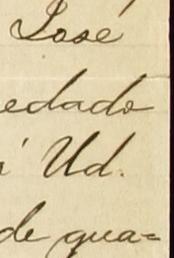 José
edado
Ud.
de gua=